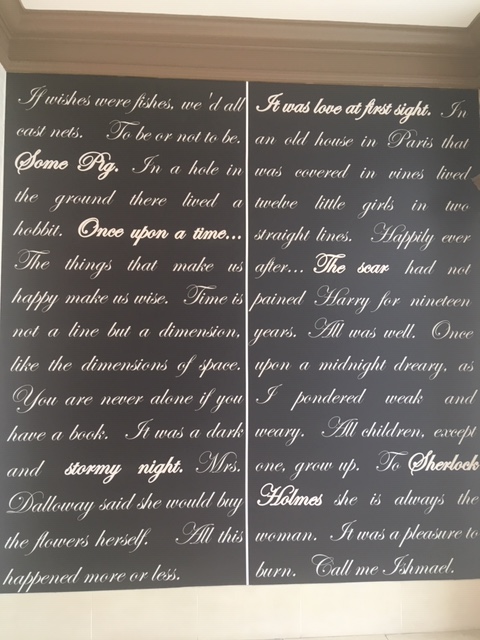 If wishes were fishes, we'd all
cast nets. To be or not to be.
Some Pig. In a hole in
the ground there lived a
hobbit. Once upon a time...
The things that make us
happy make us wise. Time is
not a line but a dimension,
like the dimensions of space.
You are never alone if you
have a book. It was a dark
and stormy night. Mrs.
Dalloway said she would buy
the flowers herself. All this
happened more or less.
It was love at first sight. In
an old house in Paris that
was covered in vines lived
twelve little girls in two
straight lines. Happily ever
after... The scar had not
pained Harry for nineteen
years. All was well. Once
upon a midnight dreary, as
I pondered weak and
weary. All children, except
one, grow up. To Sherlock
Holmes she is always the
woman. It was a pleasure to
burn. Call me Ishmael.